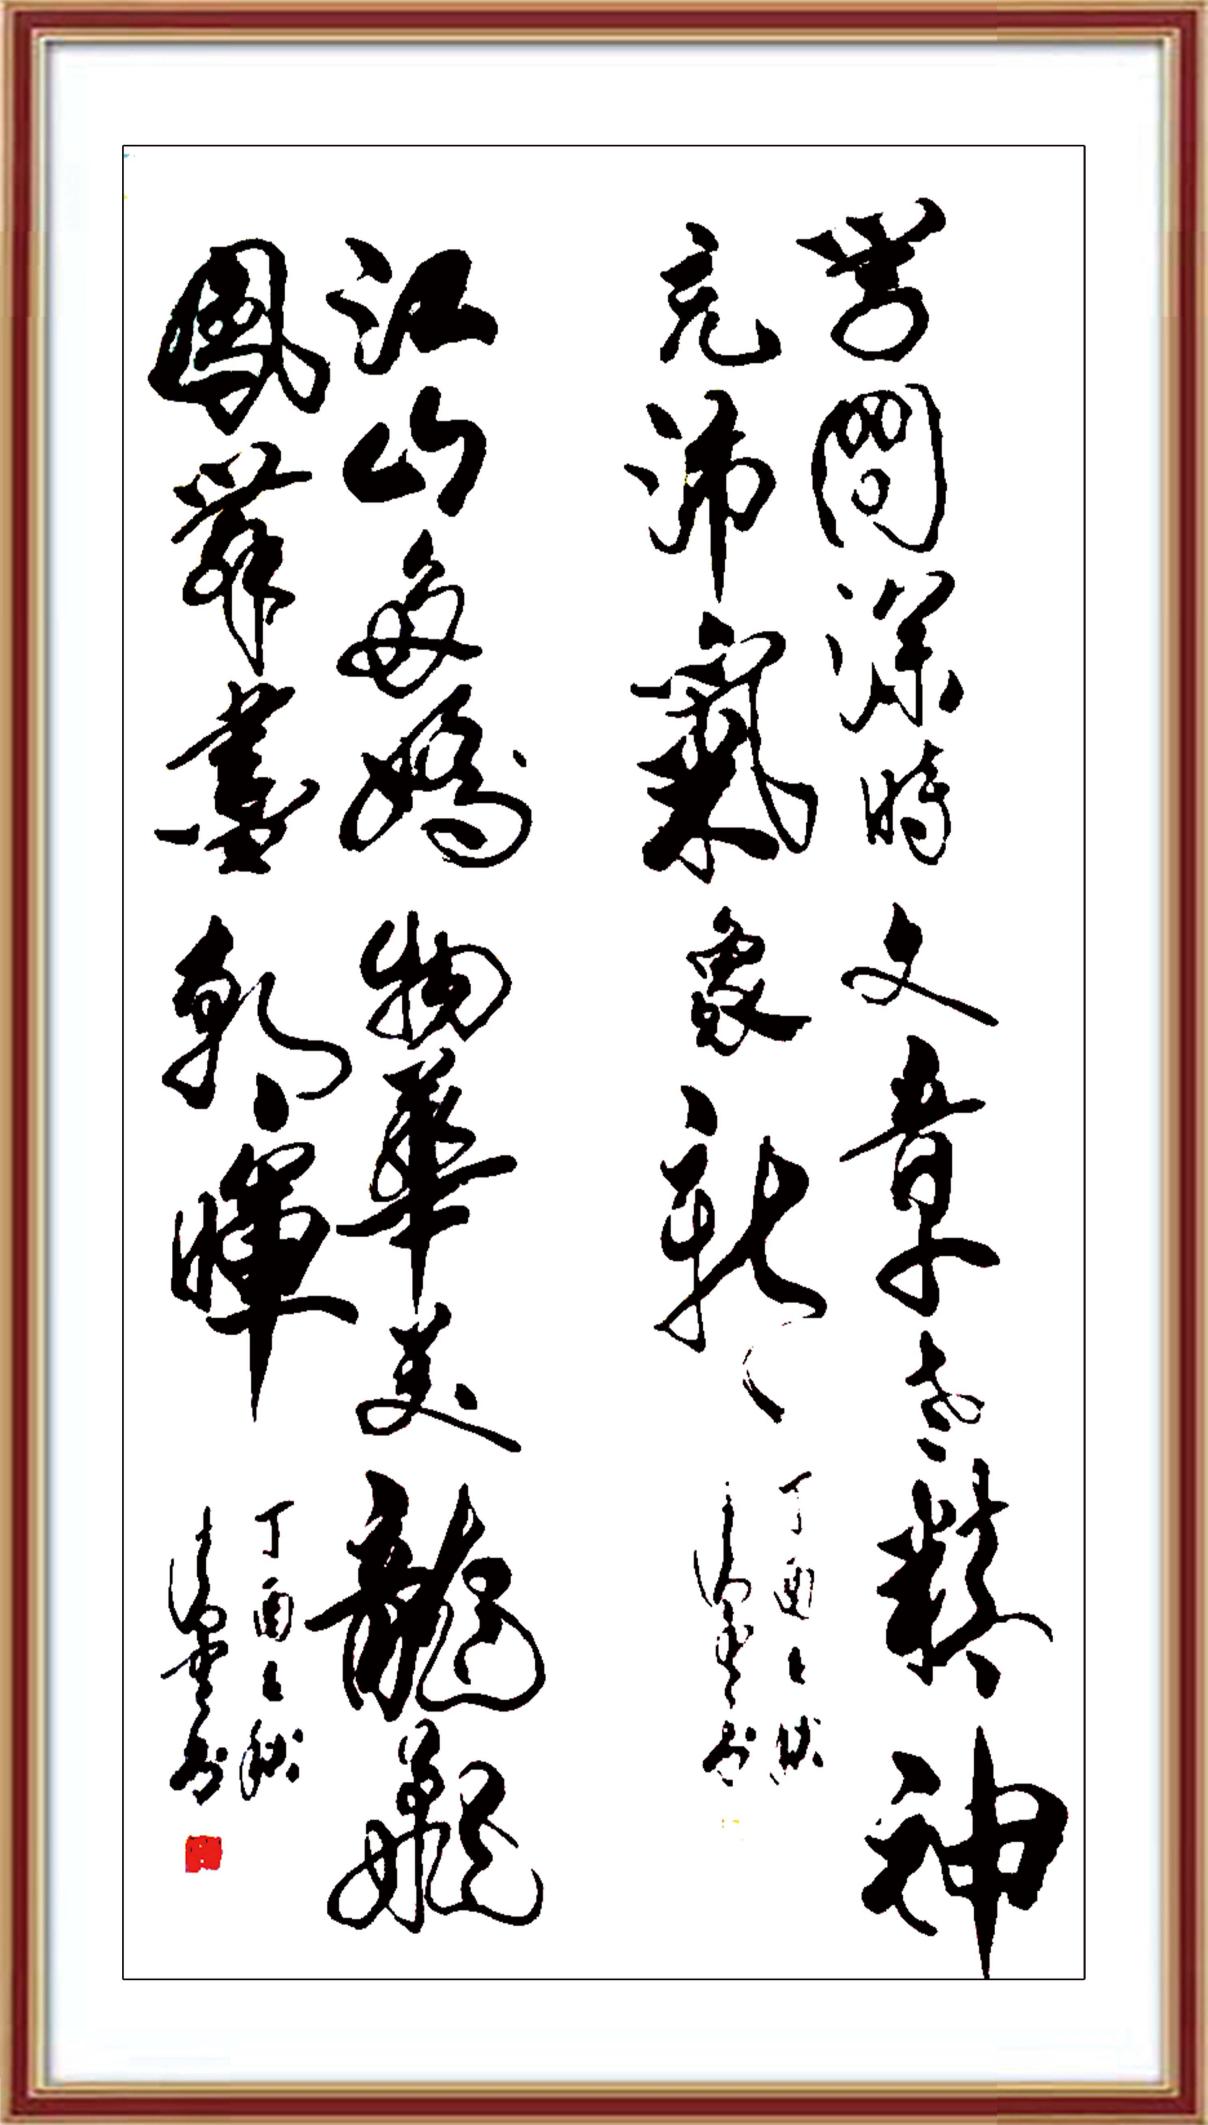 學問深時文章老精神
充沛氣象新
丁酉之秋
書
江山多嬌物華美龍飛
鳳舞盡朝暉
丁酉之秋
書